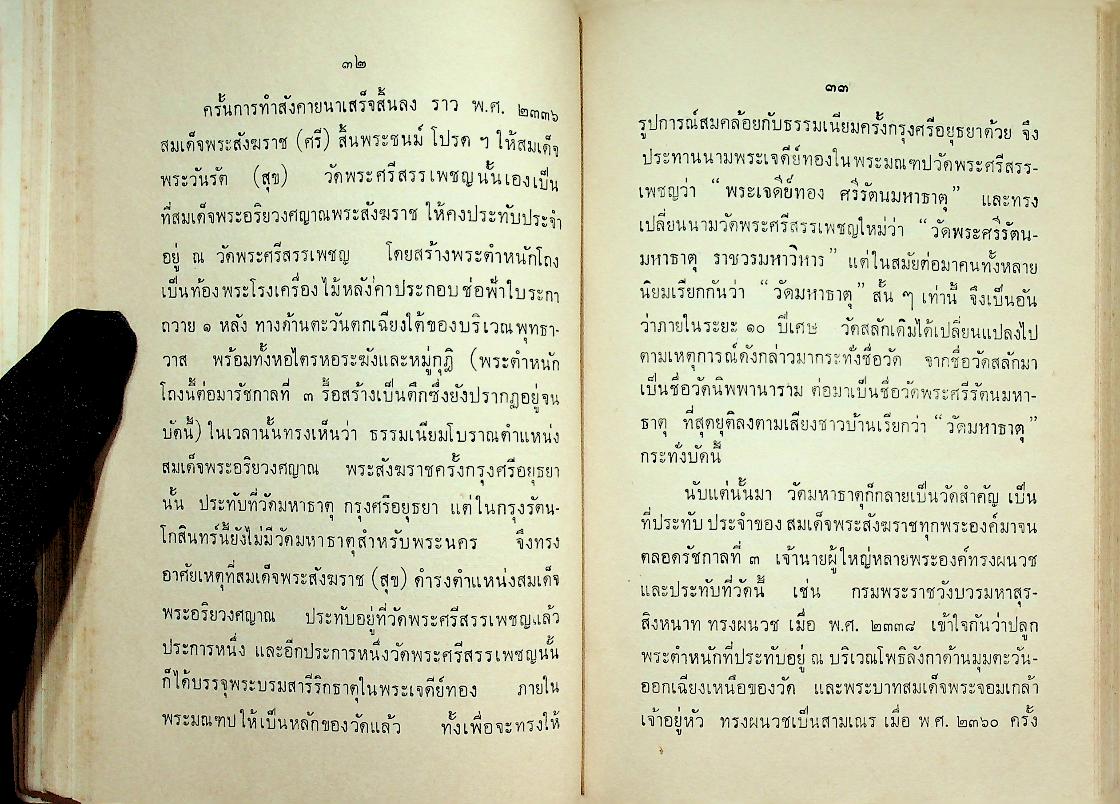 ๓๒
ครั้นการทำสังคายนาเสร็จสิ้นลง ราว พ.ศ. ๒๓๓๖
สมเด็จพระสังฆราช (ศรี) สิ้นพระชนม์ โปรด ฯ ให้สมเด็จ
พระวันรัต (สุข) วัดพระศรีสรรเพชญนั้นเองเป็น
ที่สมเด็จพระอริยวงศญาณพระสังฆราช ให้คงประทับประจำ
อยู่ ณ วัดพระศรีสรรเพชญ โดยสร้างพระตำหนักโถง
เป็นท้องพระโรงเครื่องไม้หลังคาประกอบช่อฟ้าใบระกา
ถวาย ๑ หลัง ทางด้านตะวันตกเฉียงใต้ของบริเวณพุทธา-
วาส พร้อมทั้งหอไตรหอระฆังและหมู่กุฎิ (พระตำหนัก
โถงนี้ต่อมารัชกาลที่ ๓ รื้อสร้างเป็นตึกซึ่งยังปรากฏอยู่จน
บัดนี้) ในเวลานั้นทรงเห็นว่า ธรรมเนียมโบราณตำแหน่ง
สมเด็จพระอริยวงศญาณ พระสังฆราชครั้งกรุงศรีอยุธยา
นั้น ประทับที่วัดมหาธาตุ กรุงศรีอยุธยา แต่ในกรุงรัตน-
โกสินทร์นี้ยังไม่มีวัดมหาธาตุสำหรับพระนคร จึงทรง
อาศัยเหตุที่สมเด็จพระสังฆราช (สุข) ดำรงตำแหน่งสมเด็จ
พระอริยวงศญาณ ประทับอยู่ที่วัดพระศรีสรรเพชญแล้ว
ประการหนึ่ง และอีกประการหนึ่งวัดพระศรีสรรเพชญนั้น
ก็ได้บรรจุพระบรมสารีริกธาตุในพระเจดีย์ทอง ภายใน
พระมณฑปให้เป็นหลักของวัดแล้ว ทั้งเพื่อจะทรงให้
๓๓
รูปการณ์สมคล้อยกับธรรมเนียมครั้งกรุงศรีอยุธยาด้วย จึง
ประทานนามพระเจดีย์ทองในพระมณฑปวัดพระศรีสรร-
เพชญว่า “พระเจดีย์ทอง ศรีรัตนมหาธาตุ” และทรง
เปลี่ยนนามวัดพระศรีสรรเพชญใหม่ว่า “วัดพระศรีรัตน-
มหาธาตุ ราชวรมหาวิหาร” แต่ในสมัยต่อมาคนทั้งหลาย
นิยมเรียกกันว่า “วัดมหาธาตุ” สั้น ๆ เท่านี้ จึงเป็นอัน
ว่าภายในระยะ ๑๐ ปีเศษ วัดสลักเดิมได้เปลี่ยนแปลงไป
ตามเหตุการณ์ดังกล่าวมากระทั่งชื่อวัด จากชื่อวัดสลักมา
เป็นชื่อวัดนิพพานาราม ต่อมาเป็นชื่อวัดพระศรีรัตนมหา-
ธาตุ ที่สุดยุติลงตามเสียงชาวบ้านเรียกว่า “วัดมหาธาตุ”
กระทั่งบัดนี้
นับแต่นั้นมา วัดมหาธาตุก็กลายเป็นวัดสำคัญ เป็น
ที่ประทับ ประจำของ สมเด็จพระสังฆราชทุกพระองค์มาจน
ตลอดรัชกาลที่ ๓ เจ้านายผู้ใหญ่หลายพระองค์ทรงผนวช
และประทับที่วัดนี้ เช่น กรมพระราชวังบวรมหาสุร-
สิงหนาท ทรงผนวช เมื่อ พ.ศ. ๒๓๓๘ เข้าใจกันว่าปลูก
พระตำหนักที่ประทับอยู่ ณ บริเวณโพธิลังกาด้านมุมตะวัน-
ออกเฉียงเหนือของวัด และพระบาทสมเด็จพระจอมเกล้า
เจ้าอยู่หัว ทรงผนวชเป็นสามเณร เมื่อ พ.ศ. ๒๓๖๐ ครั้ง